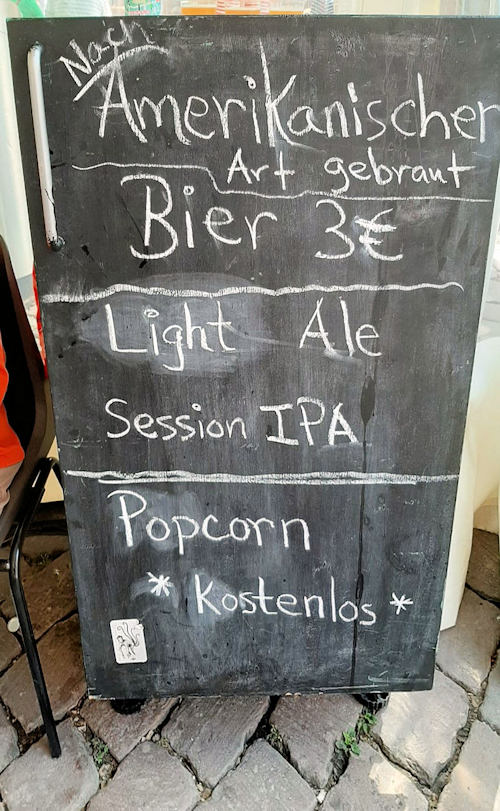 Nach
Amerikanischer
Art gebraut
Bier 3€
Light Ale
Session IPA
Popcorn
* Kostenlos *